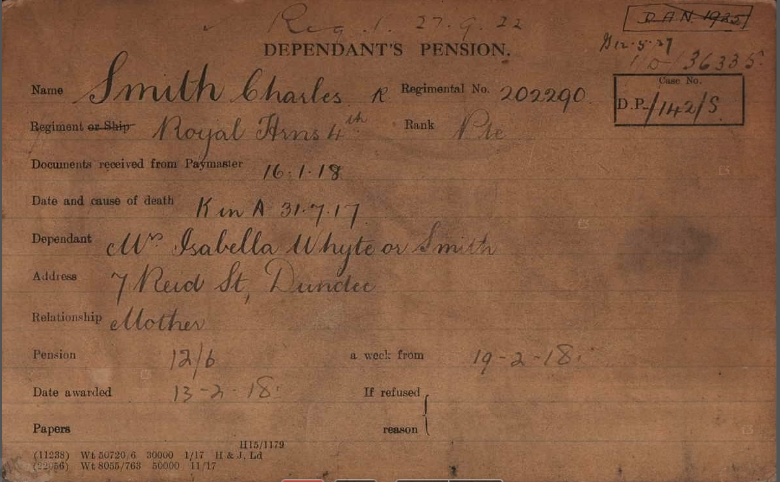 Reg. 1. 27.9.22
DAN. 1925
Dec. 5. 27
10/36335
DEPENDANT'S PENSION.
Name Smith Charles R Regimental No. 202290.
Case No.
D.P./142/S.
Regiment or Ship Royal Hrns 4th Rank Pte
Documents received from Paymaster 16.1.18
Date and cause of death K in A 31.7.17
Dependant Mrs Isabella Whyte or Smith
Address 7 Reid St, Dundee
Relationship Mother
Pension 12/6 a week from 19-2-18.
Date awarded 13-2-18. If refused
Papers reason
H15/1179
(11238) Wt 50720/6 30000 1/17 H & J, Ld
Wt 8055/763 50000 11/17